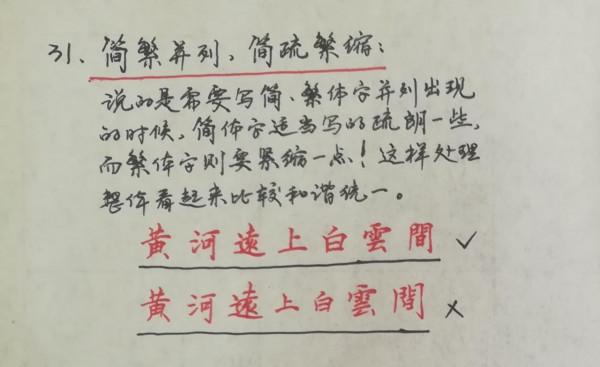 31、简繁并列，简疏繁缩：
说的是需要写简、繁体字并列出现
的时候，简体字适当写的疏朗一些，
而繁体字则要紧缩一点！这样处理
整体看起来比较和谐统一。
黄河遠上白雲間 ✓
黄河遠上白雲間 ×